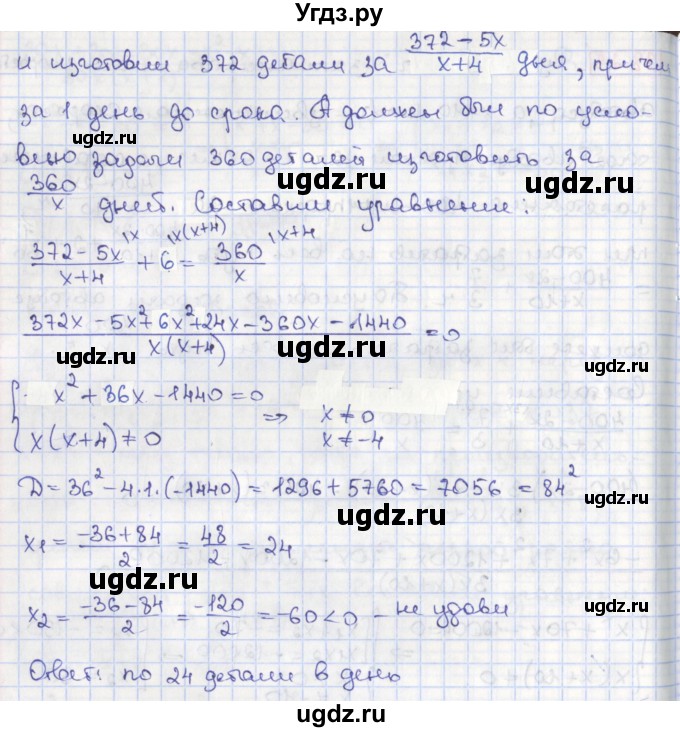 Угдз.ру
и изготовили 372 детали за (372 - 5x)/(x+4) дня, причем
за 1 день до срока. А должен был по усло-
вию задачи 360 деталей изготовить за
ugdz.ru ugdz.ru
360/x дней. Составим уравнение:
(372 - 5x)/(x+4) |x + 6 |x(x+4) = 360/x |x+4
ugdz.ru ugdz.ru
(372x - 5x²+6x²+24x - 360x - 1440)/(x(x+4)) = 0
ugdz.ru ugdz.ru
{ x² + 36x - 1440 = 0
x(x+4) ≠ 0 => x ≠ 0
x ≠ -4
D = 36² - 4·1·(-1440) = 1296 + 5760 = 7056 = 84²
ugdz.ru ugdz.ru
x1 = (-36+84)/2 = 48/2 = 24
ugdz.ru
x2 = (-36-84)/2 = -120/2 = -60 < 0 - не удовл
ugdz.ru
Ответ: по 24 детали в день
ugdz.ru
ugdz.ru